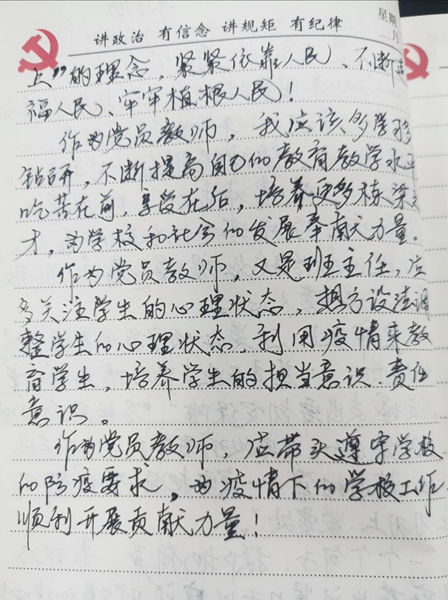 讲政治 有信念 讲规矩 有纪律
星期
月
上”的理念,紧紧依靠人民、不断造
福人民、牢牢植根人民!
作为党员教师,我应该多学习
钻研,不断提高自己的教育教学水平
吃苦在前,享受在后,培养更多栋梁之
才,为学校和社会的发展奉献力量。
作为党员教师,又是班主任,应
多关注学生的心理状态,想方设法调
整学生的心理状态,利用疫情来教
育学生,培养学生的担当意识、责任
意识。
作为党员教师,应带头遵守学校
的防疫要求,为疫情下的学校工作
顺利开展贡献力量!